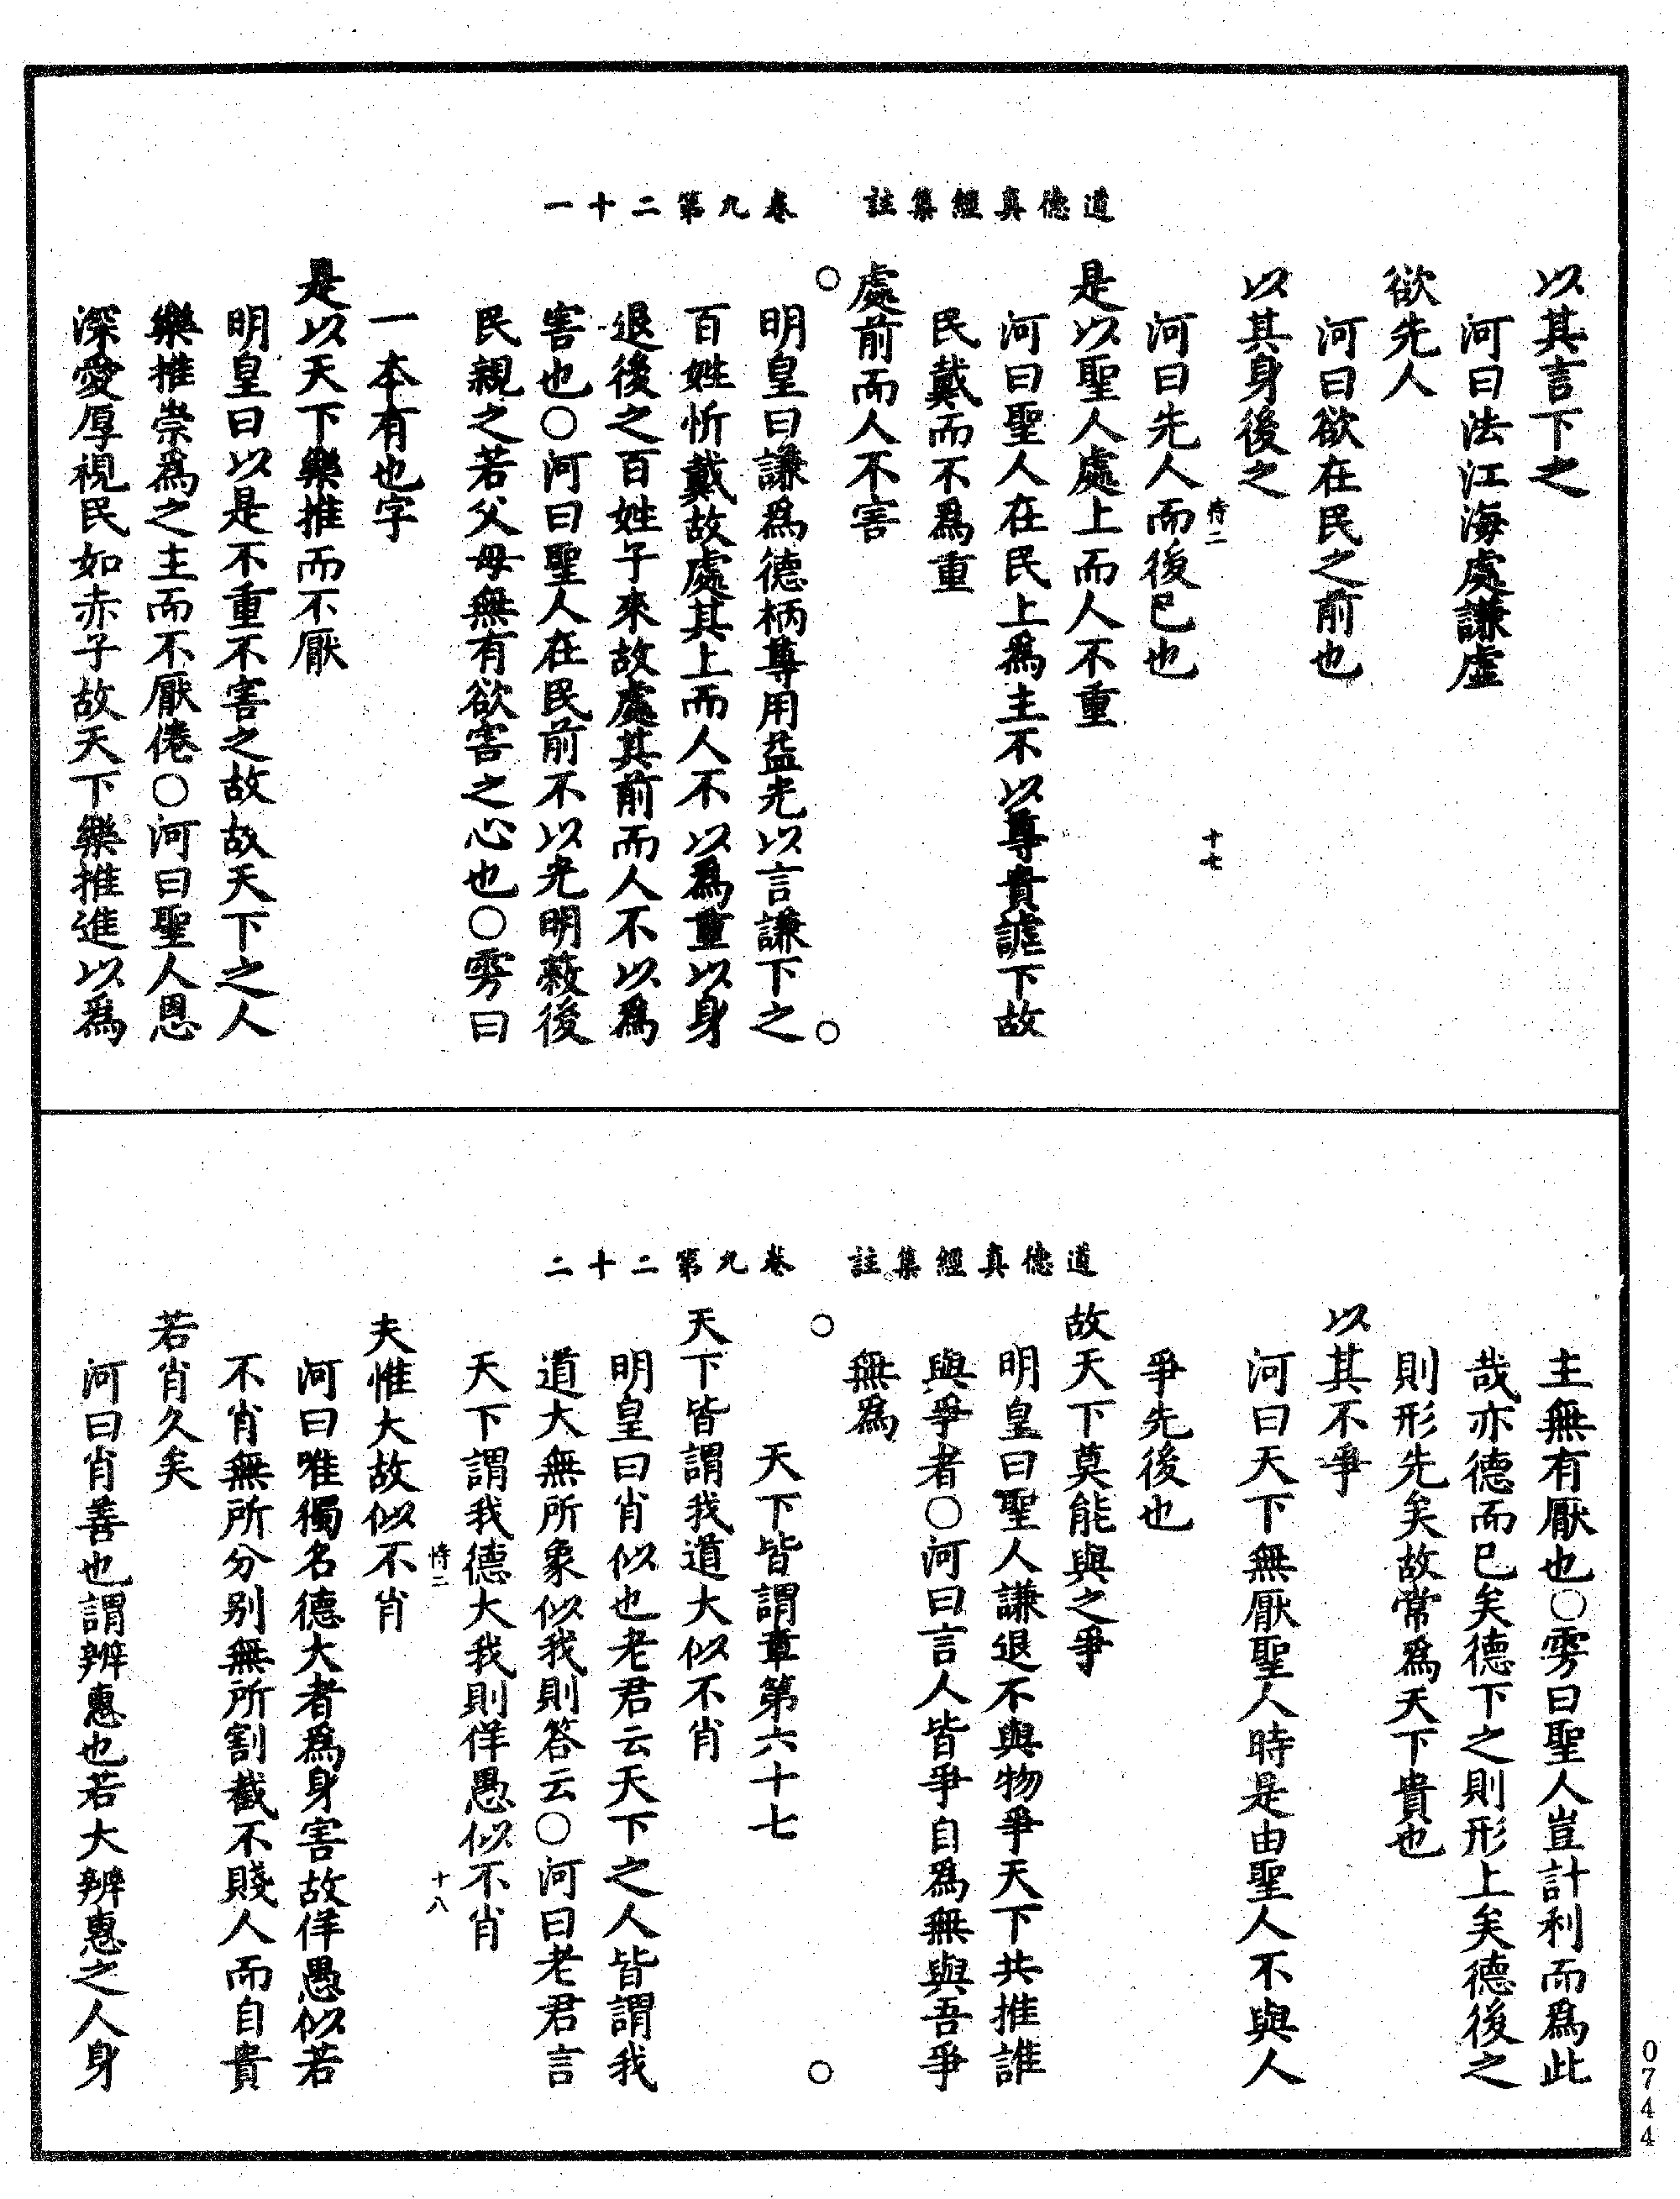 道德真經集註　卷九第二十一
以其言下之
河曰法江海處謙虛
欲先人
河曰欲在民之前也
以其身後之
恃二　十七
河曰先人而後已也
是以聖人處上而人不重
河曰聖人在民上爲主不以尊貴謔下故
民戴而不爲重
處前而人不害
明皇曰謙爲德柄尊用益光以言謙下之
百姓忻戴故處其上而人不以爲重以身
退後之百姓子來故處其前而人不以爲
害也○河曰聖人在民前不以光明蔽後
民親之若父母無有欲害之心也○雱曰
一本有也字
是以天下樂推而不厭
明皇曰以是不重不害之故故天下之人
樂推崇爲之主而不厭倦○河曰聖人恩
深愛厚視民如赤子故天下樂推進以爲
道德真經集註　卷九第二十二
主無有厭也○雱曰聖人豈計利而爲此
哉亦德而已矣德下之則形上矣德後之
則形先矣故常爲天下貴也
以其不爭
河曰天下無厭聖人時是由聖人不與人
爭先後也
故天下莫能與之爭
明皇曰聖人謙退不與物爭天下共推誰
與爭者○河曰言人皆爭自爲無與吾爭
無爲
天下皆謂章第六十七
天下皆謂我道大似不肖
明皇曰肖似也老君云天下之人皆謂我
道大無所象似我則答云○河曰老君言
天下謂我德大我則佯愚似不肖
恃二　十八
夫惟大故似不肖
河曰唯獨名德大者爲身害故佯愚似若
不肖無所分別無所割截不賤人而自貴
若肖久矣
河曰肖善也謂辨惠也若大辨惠之人身
0744